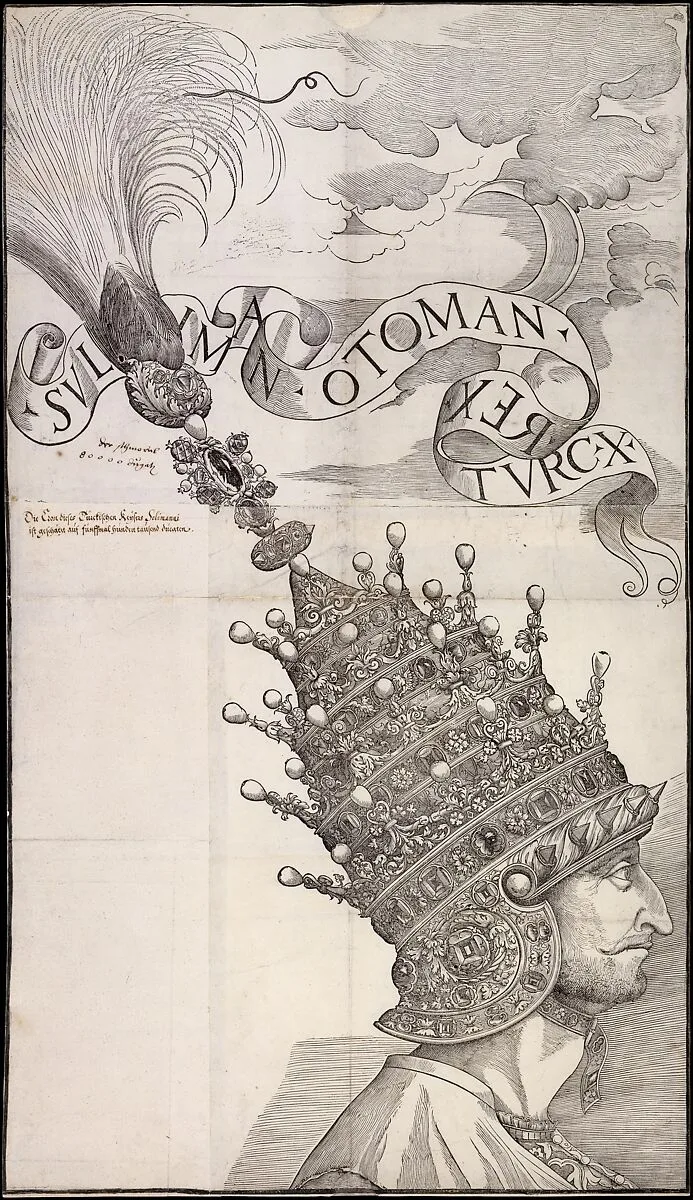 · SVLIMAN · OTOMAN ·
REX
TVRC · X ·
der
80000
Die Cron dieses Türckischen Keysers Solimanni
ist geschäczt auf fünffmal hundert tausend ducaten.